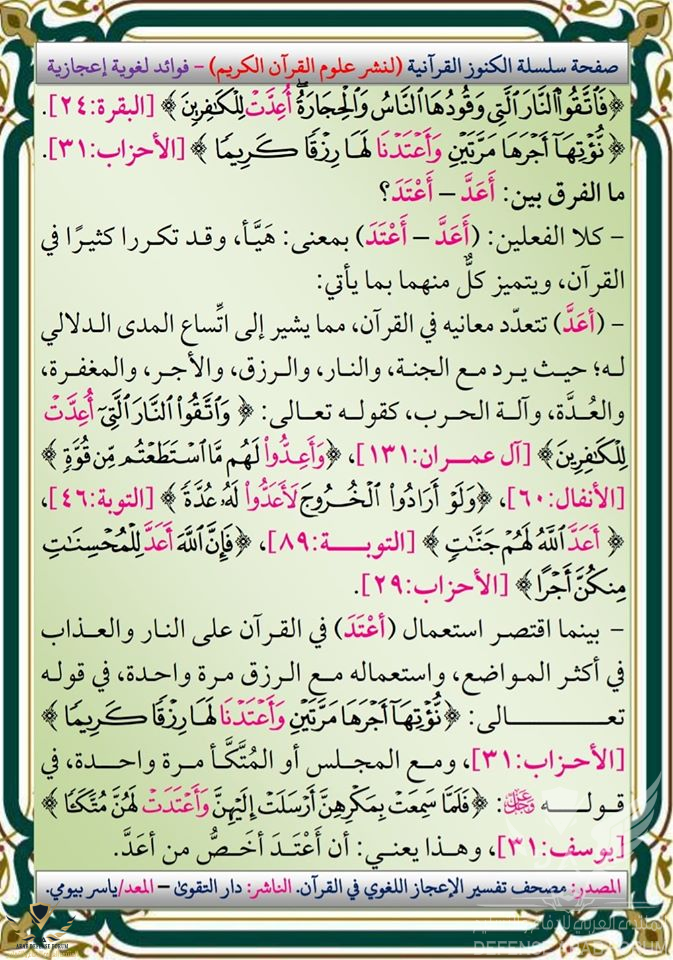 صفحة سلسلة الكنوز القرآنية (لنشر علوم القرآن الكريم) – فوائد لغوية إعجازية
﴿فَٱتَّقُواْ ٱلنَّارَ ٱلَّتِي وَقُودُهَا ٱلنَّاسُ وَٱلۡحِجَارَةُۖ أُعِدَّتۡ لِلۡكَٰفِرِينَ﴾ [البقرة:٢٤].
﴿نُّؤۡتِهَآ أَجۡرَهَا مَرَّتَيۡنِ وَأَعۡتَدۡنَا لَهَا رِزۡقٗا كَرِيمٗا﴾ [الأحزاب:٣١].
ما الفرق بين: أَعَدَّ – أَعْتَدَ؟
– كلا الفعلين: (أَعَدَّ – أَعْتَدَ) بمعنى: هَيَّأ، وقد تكررا كثيرًا في
القرآن، ويتميز كلٌّ منهما بما يأتي:
– (أعَدَّ) تتعدّد معانيه في القرآن، مما يشير إلى اتِّساع المدى الدلالي
له؛ حيث يرد مع الجنة، والنار، والرزق، والأجر، والمغفرة،
والعُدَّة، وآلة الحرب، كقوله تعالى: ﴿وَٱتَّقُواْ ٱلنَّارَ ٱلَّتِيٓ أُعِدَّتۡ
لِلۡكَٰفِرِينَ﴾ [آل عمران:١٣١]، ﴿وَأَعِدُّواْ لَهُم مَّا ٱسۡتَطَعۡتُم مِّن قُوَّةٖ﴾
[الأنفال:٦٠]، ﴿وَلَوۡ أَرَادُواْ ٱلۡخُرُوجَ لَأَعَدُّواْ لَهُۥ عُدَّةٗ﴾ [التوبة:٤٦]،
﴿أَعَدَّ ٱللَّهُ لَهُمۡ جَنَّٰتٖ﴾ [التوبة:٨٩]، ﴿فَإِنَّ ٱللَّهَ أَعَدَّ لِلۡمُحۡسِنَٰتِ
مِنكُنَّ أَجۡرًا﴾ [الأحزاب:٢٩].
– بينما اقتصر استعمال (أعْتَدَ) في القرآن على النار والعذاب
في أكثر المواضع، واستعماله مع الرزق مرة واحدة، في قوله
تعالى: ﴿نُّؤۡتِهَآ أَجۡرَهَا مَرَّتَيۡنِ وَأَعۡتَدۡنَا لَهَا رِزۡقٗا كَرِيمٗا﴾
[الأحزاب:٣١]، ومع المجلس أو المُتَّكَأ مرة واحدة، في
قوله عَزَّ وَجَلَّ: ﴿فَلَمَّا سَمِعَتۡ بِمَكۡرِهِنَّ أَرۡسَلَتۡ إِلَيۡهِنَّ وَأَعۡتَدَتۡ لَهُنَّ مُتَّكَـٔٗا﴾
[يوسف:٣١]، وهذا يعني: أن أَعْتَدَ أخَصُّ من أعَدَّ.
المصدر: مصحف تفسير الإعجاز اللغوي في القرآن. الناشر: دار التقوى – المعد/ياسر بيومي.
ARAB DEFENSE FORUM
المنتدى العربي للدفاع والتسليح
DEFENSE ARAB FORUM